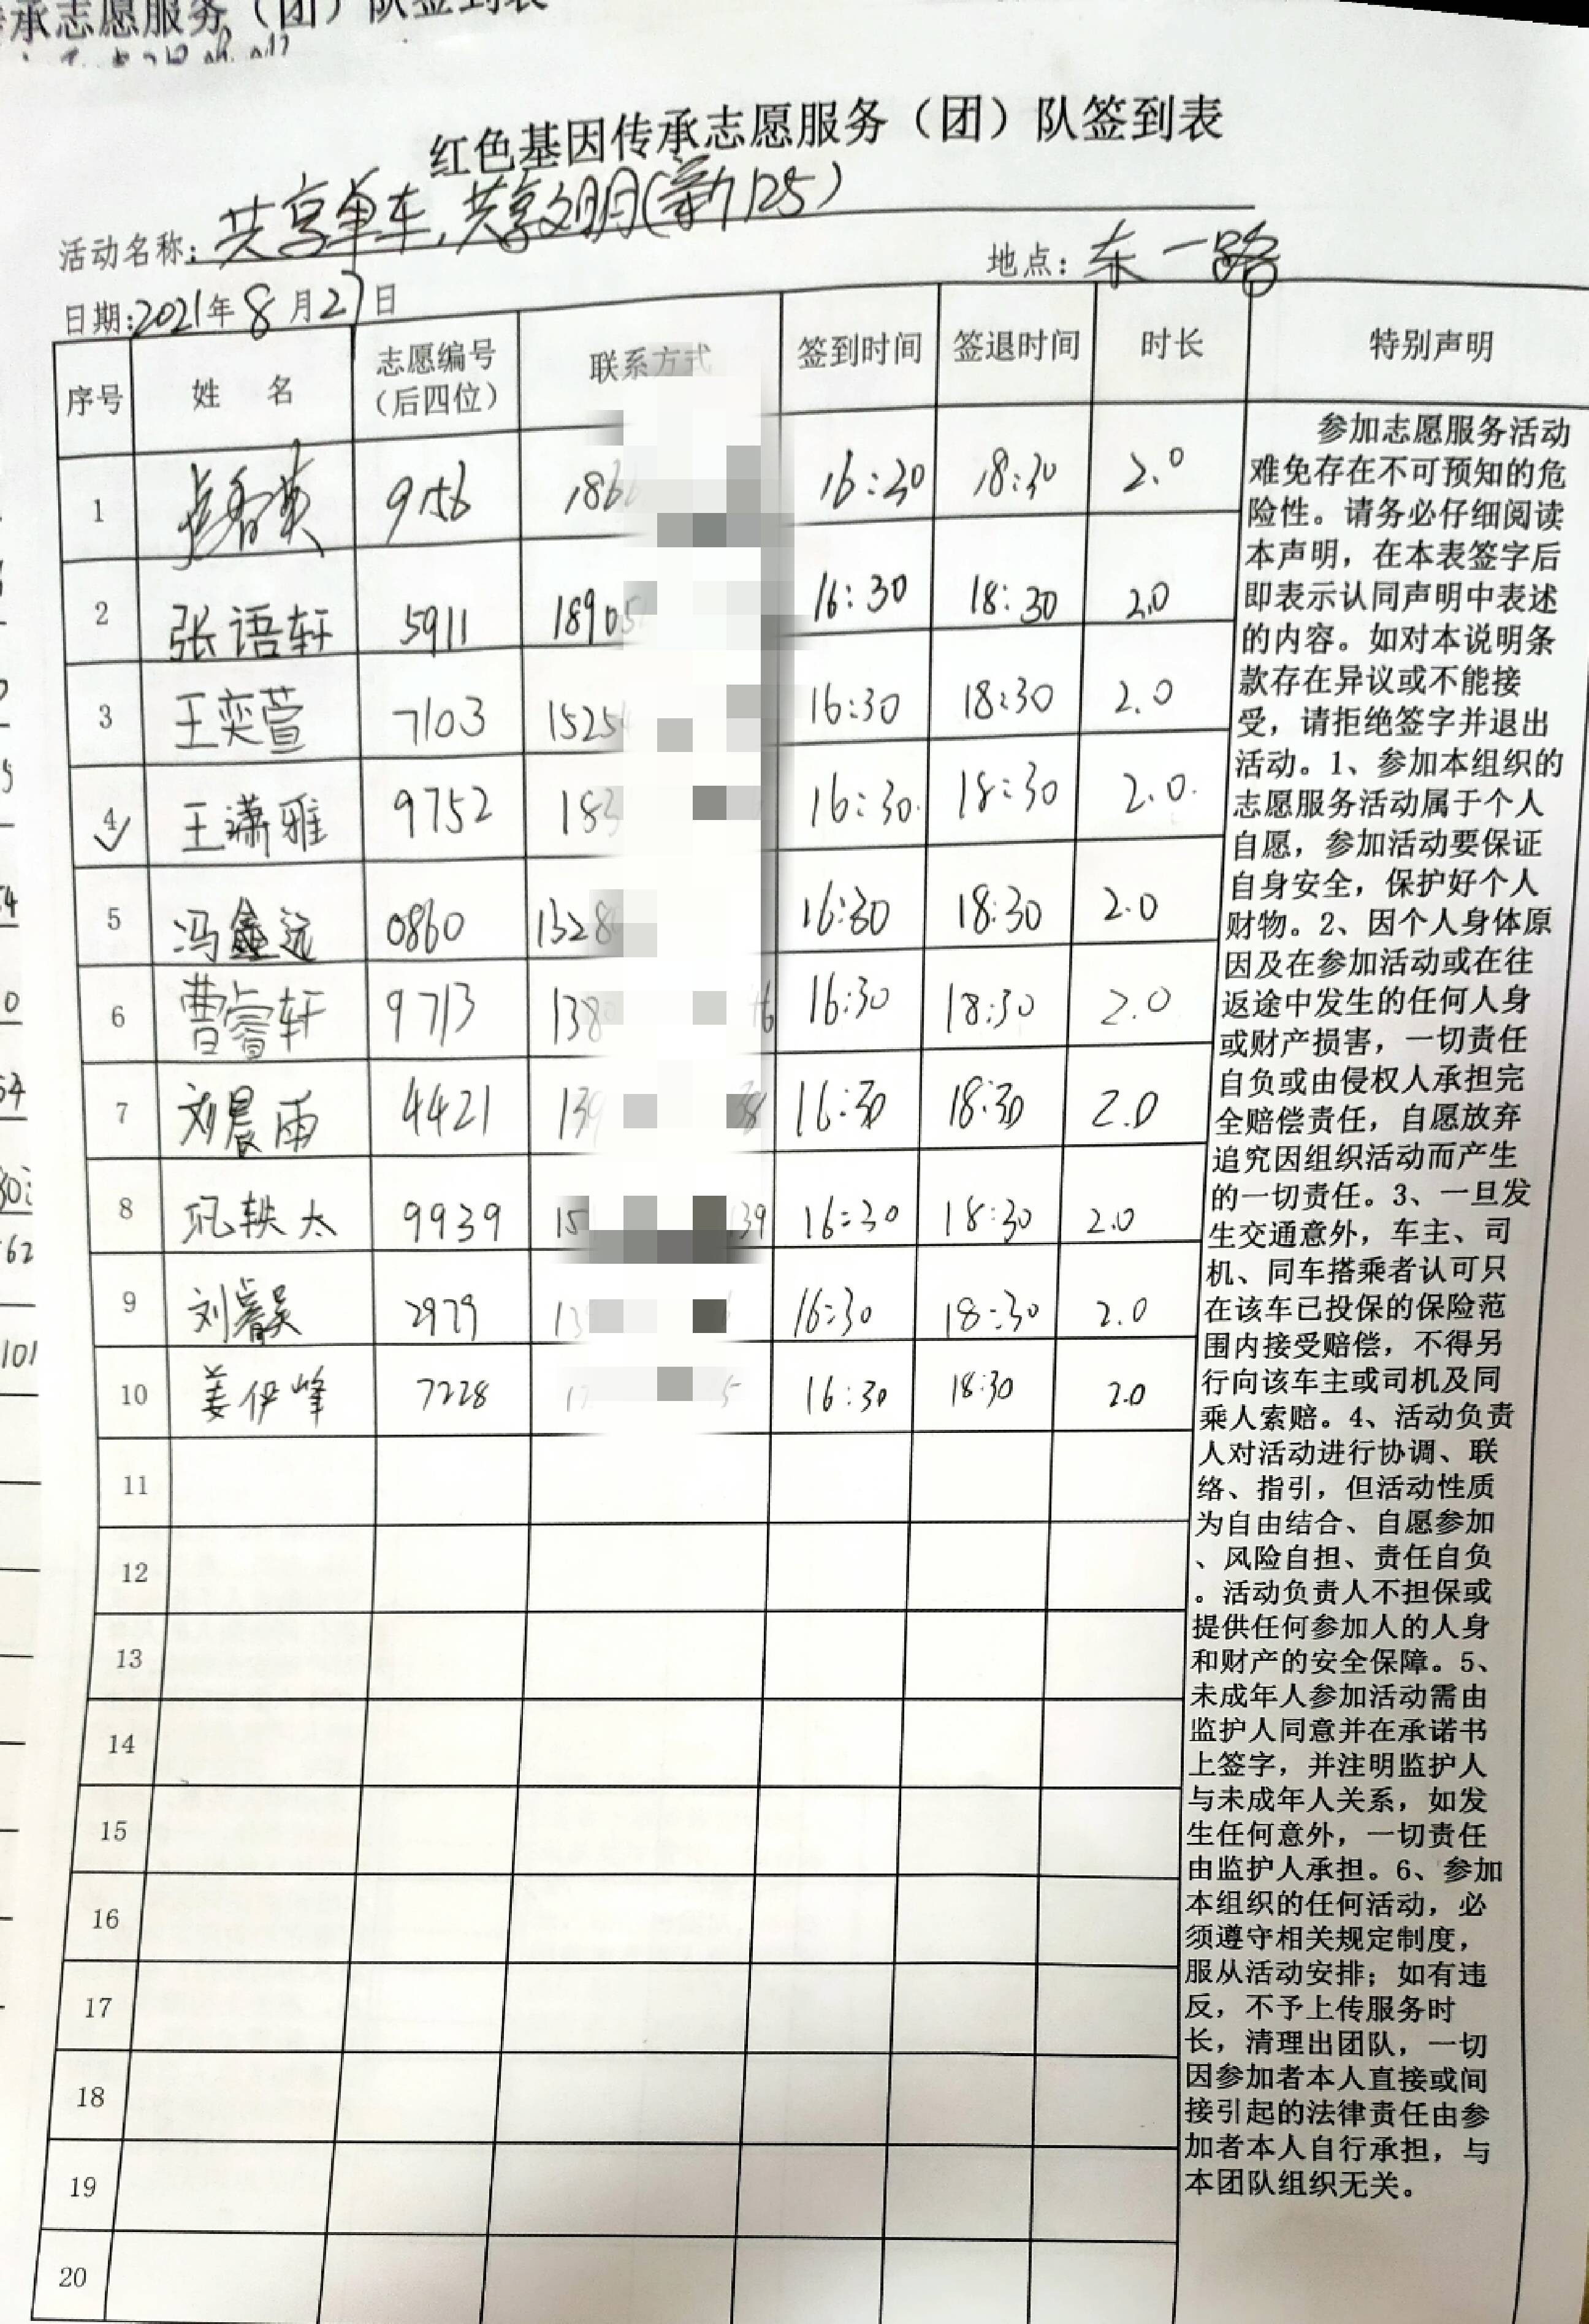 承志愿服务（团）队签到表
红色基因传承志愿服务（团）队签到表
活动名称：共享单车,共享文明(新125)
地点：东一路
日期:2021年8月27日
序号 姓 名 志愿编号（后四位） 联系方式 签到时间 签退时间 时长 特别声明
1 9156 186 16:30 18:30 2.0
2 张语轩 5911 18905 16:30 18:30 2.0
3 王奕萱 7103 1525 16:30 18:30 2.0
4 王潇雅 9752 183 16:30 18:30 2.0
5 冯鑫远 0860 1328 16:30 18:30 2.0
6 曹睿轩 9713 138 16:30 18:30 2.0
7 刘晨雨 4421 139 16:30 18:30 2.0
8 巩轶太 9939 15 139 16:30 18:30 2.0
9 刘睿昊 2979 13 16:30 18:30 2.0
10 姜伊峰 7228 17 5 16:30 18:30 2.0
11
12
13
14
15
16
17
18
19
20
参加志愿服务活动
难免存在不可预知的危
险性。请务必仔细阅读
本声明，在本表签字后
即表示认同声明中表述
的内容。如对本说明条
款存在异议或不能接
受，请拒绝签字并退出
活动。1、参加本组织的
志愿服务活动属于个人
自愿，参加活动要保证
自身安全，保护好个人
财物。2、因个人身体原
因及在参加活动或在往
返途中发生的任何人身
或财产损害，一切责任
自负或由侵权人承担完
全赔偿责任，自愿放弃
追究因组织活动而产生
的一切责任。3、一旦发
生交通意外，车主、司
机、同车搭乘者认可只
在该车已投保的保险范
围内接受赔偿，不得另
行向该车主或司机及同
乘人索赔。4、活动负责
人对活动进行协调、联
络、指引，但活动性质
为自由结合、自愿参加
、风险自担、责任自负
。活动负责人不担保或
提供任何参加人的人身
和财产的安全保障。5、
未成年人参加活动需由
监护人同意并在承诺书
上签字，并注明监护人
与未成年人关系，如发
生任何意外，一切责任
由监护人承担。6、参加
本组织的任何活动，必
须遵守相关规定制度，
服从活动安排；如有违
反，不予上传服务时
长，清理出团队，一切
因参加者本人直接或间
接引起的法律责任由参
加者本人自行承担，与
本团队组织无关。